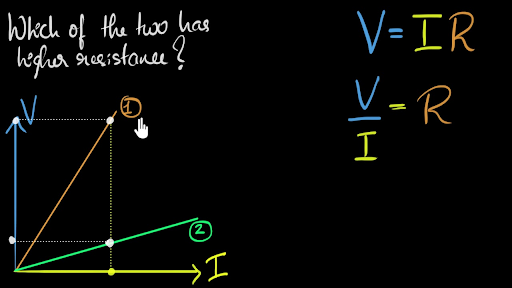 Which of the two has
higher resistance?
V = I R
V
I
= R
V
1
2
I